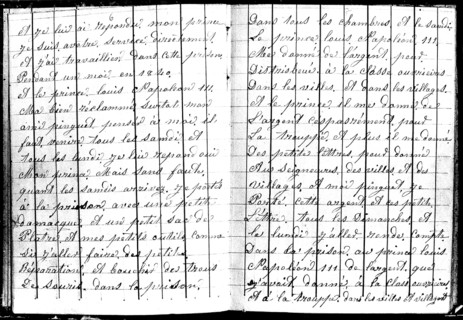 et je lui ai repondu mon prince
je suis avotre service directement
et j'ai travaillier dans cette prison
Pendant un mois en 1840
et le prince louis Napoléon 111.
Ma bien réclammé surtat mon
ami pinguet pensée a moi il
faut venire tous les samdi et
tous les lundi je lui repond oui
Mon prince Mais sans faute
quant les samdis arrivez je partit
à la prison, avec une petite
et un petit sac de
Platre, et mes prétits outils comme
Si j'allez faire des pétites
Réparations et boucher des trous
De Souris dans la prison.
Dans tous les chambres et le samdi
Le prince louis Napoléon 111.
Me donné de l'argent, pour
Distribué à la Classe ouvriers
Dans les villes, et dans les villages.
Et le prince il me donne de
L'argent
La trouppe, et puis il me donné
Des petites lettres, pour donné
Aux Seigneures, des villes et des
villages, et moi pinguet, je
Porté, cette argent, et ces pétite,
L'ettre, tous les Dimanches, et
les lundi j'allez rende, compte
Dans la prison, au prince louis
Napoléon 111 de l'argent, que
j'avait donné, à la Class ouvriers
et à la trouppe, dans les villes et villages